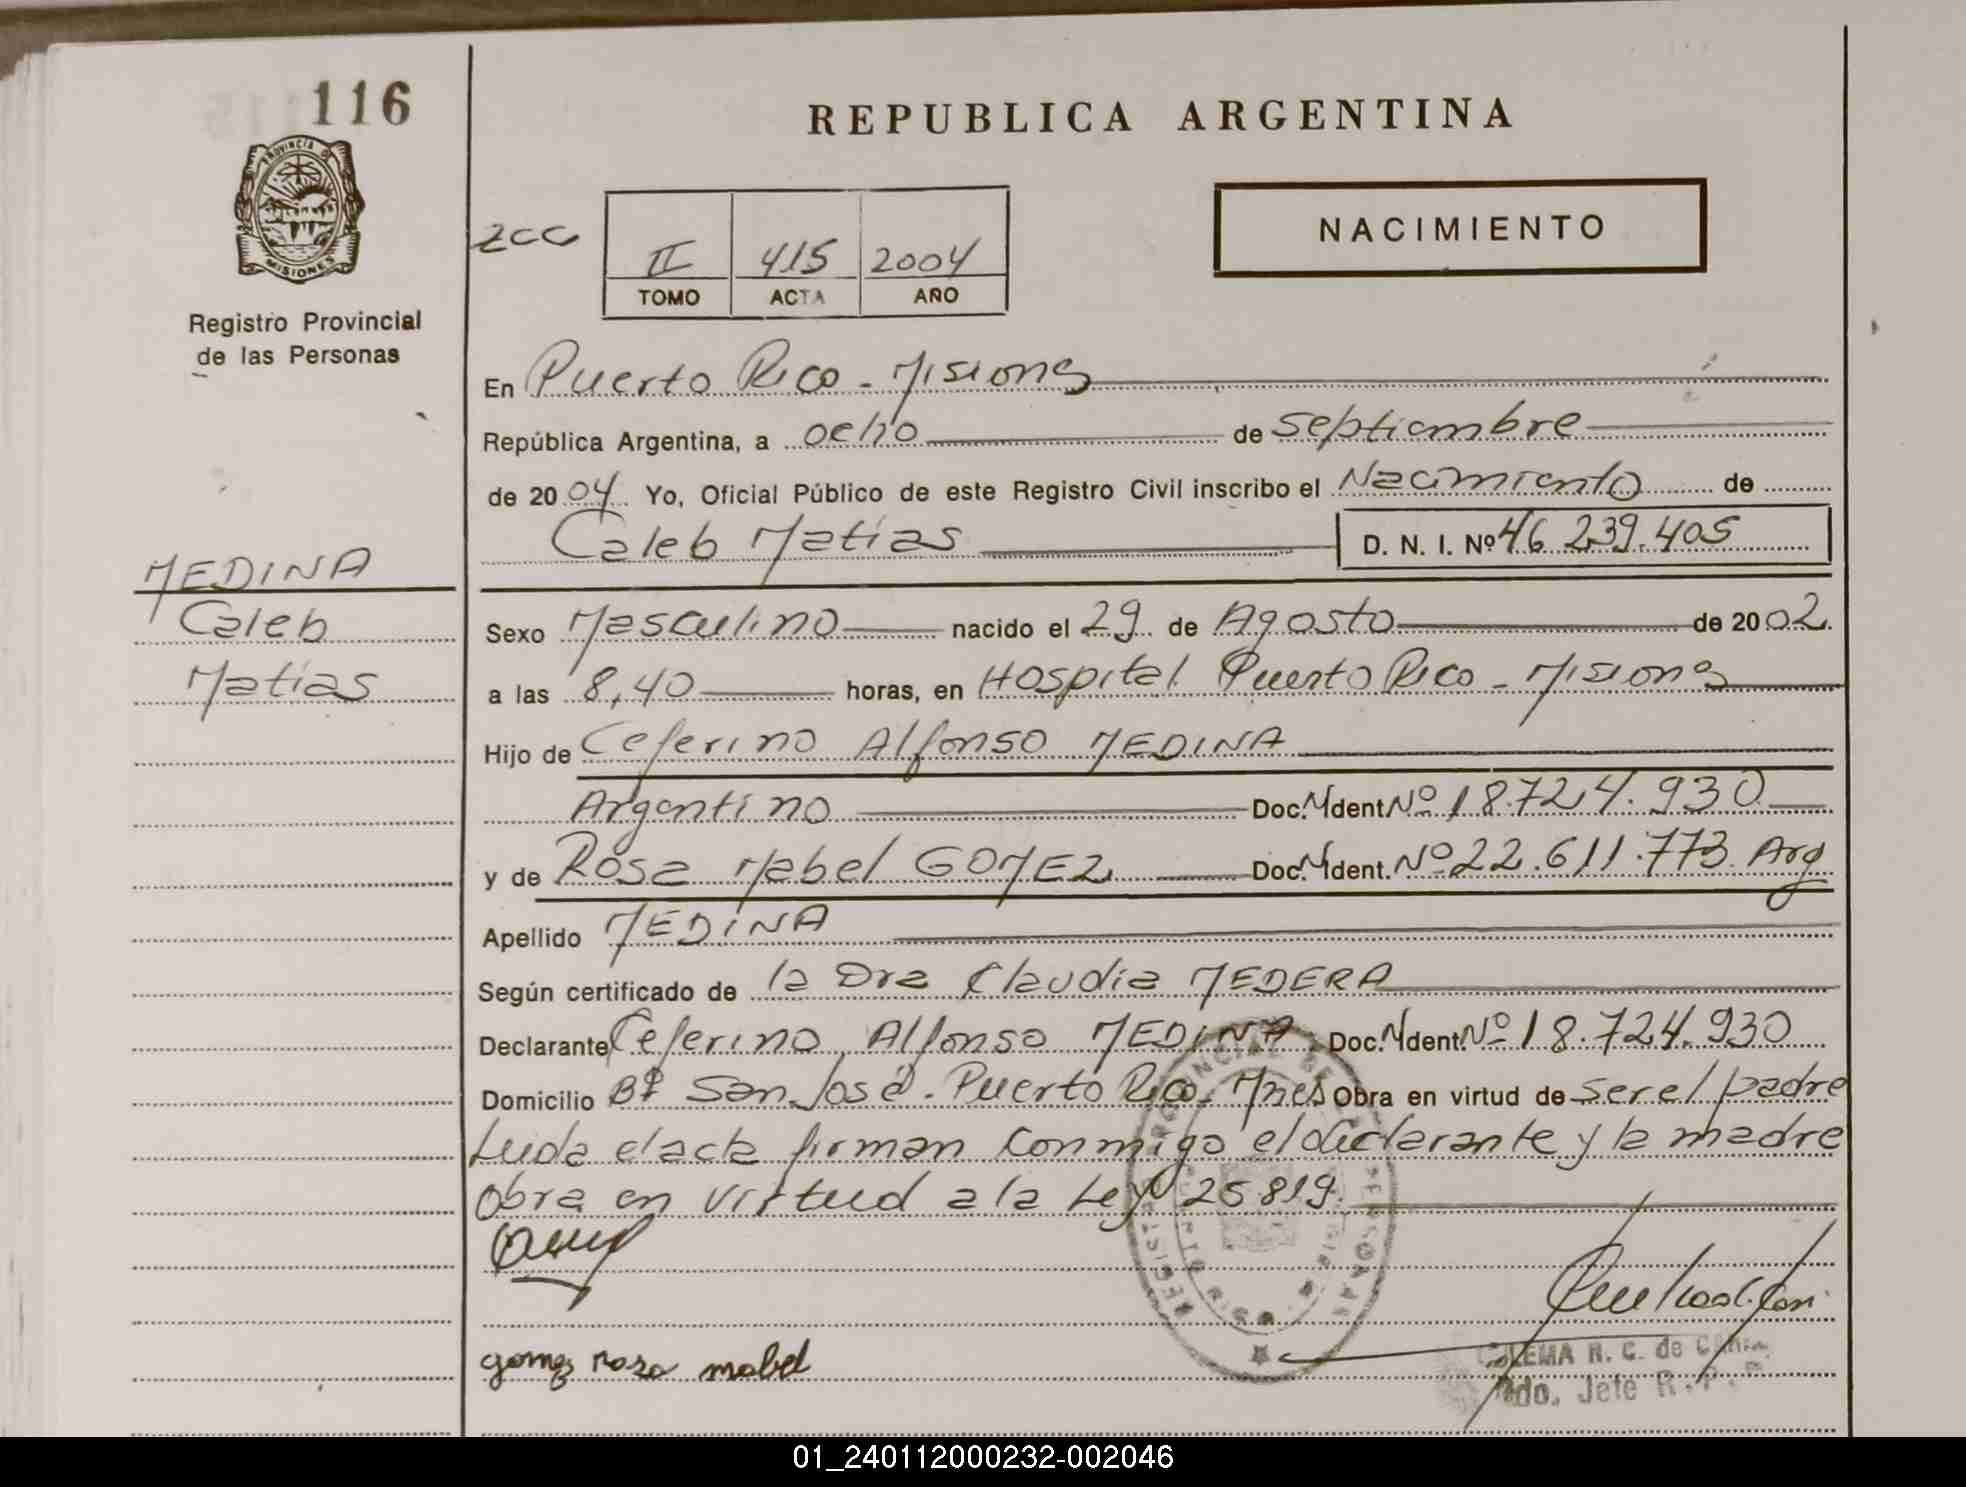 116
PROVINCIA DE
MISIONES
Registro Provincial
de las Personas
REPUBLICA ARGENTINA
NACIMIENTO
II 415 2004
TOMO ACTA AÑO
En Puerto Rico - Misiones
República Argentina, a ocho de septiembre
de 2004 Yo, Oficial Público de este Registro Civil inscribo el Nacimiento de
Caleb Matías D. N. I. Nº 46 239.405
MEDINA
Caleb
Matías
Sexo Masculino nacido el 29 de Agosto de 2002
a las 8,40 horas, en Hospital Puerto Rico - Misiones
Hijo de Ceferino Alfonso MEDINA
Argentino Doc. Ident. Nº 18.724.930
y de Rosa Mabel GOMEZ Doc. Ident. Nº 22.611.773 Arg
Apellido MEDINA
Según certificado de la Dra Claudia MEDERA
Declarante Ceferino Alfonso MEDINA Doc. Ident. Nº 18.724.930
Domicilio Bº San José - Puerto Rico - Mnes Obra en virtud de ser el padre
Leida el acta firman conmigo el declarante y la madre
obra en virtud a la Ley 25.819.
gomez rosa mabel
R. C. de
Jefe R. P.
01_240112000232-002046